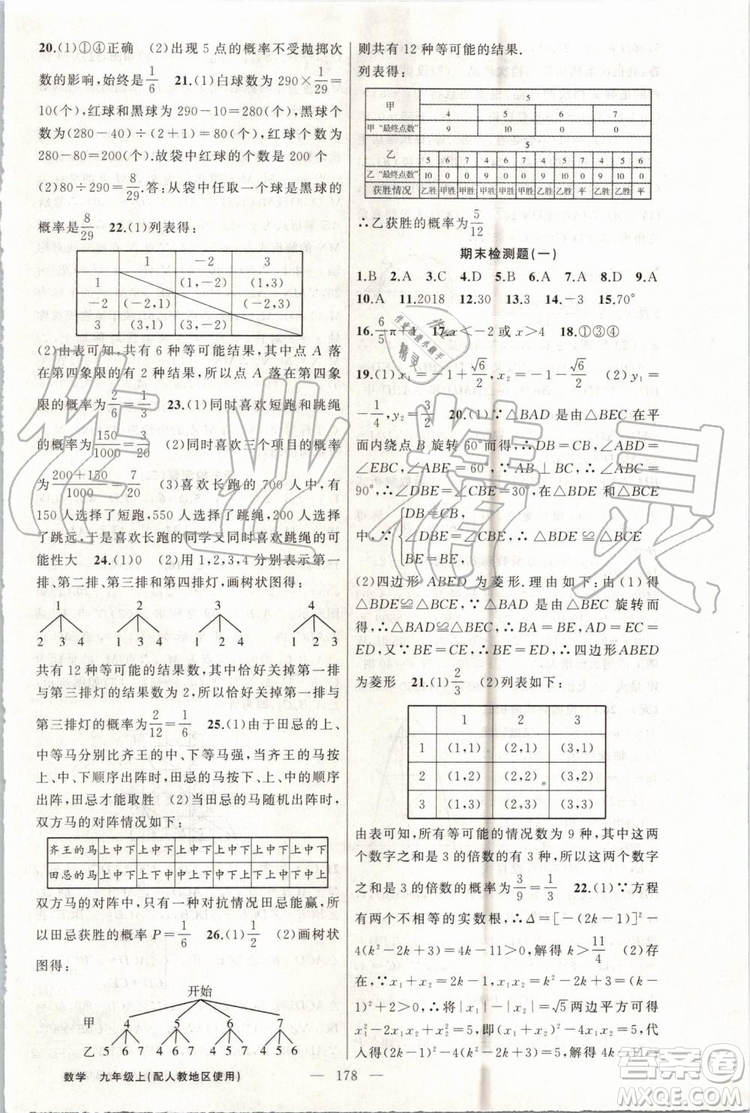 20.(1)①④正确 (2)出现 5 点的概率不受抛掷次
数的影响,始终是1/6 21.(1)白球数为 290×1/29=
10(个),红球和黑球为 290-10=280(个),黑球个
数为(280-40)÷(2+1)=80(个),红球个数为
280-80=200(个).故袋中红球的个数为 200 个
(2)80÷290=8/29.答:从袋中任取一个球是黑球的
概率是8/29 22.(1)列表得:
1 -2 3
1 (1,-2) (1,3)
-2 (-2,1) (-2,3)
3 (3,1) (3,-2)
(2)由表可知,共有 6 种等可能结果,其中点 A 落
在第四象限的有 2 种结果,所以点 A 落在第四象
限的概率为2/6=1/3 23.(1)同时喜欢短跑和跳绳
的概率为150/1000=3/20 (2)同时喜欢三个项目的概率
为(200+150)/1000=7/20 (3)喜欢长跑的 700 人中,有
150 人选择了短跑,550 人选择了跳绳,200 人选择
了跳远,于是喜欢长跑的同学又同时喜欢跳绳的可
能性大 24.(1)0 (2)用 1,2,3,4 分别表示第一
排、第二排、第三排和第四排灯,画树状图得:
1 2 3 4
2 3 4 1 3 4 1 2 4 1 2 3
共有 12 种等可能的结果数,其中恰好关掉第一排
与第三排灯的结果数为 2,所以恰好关掉第一排与
第三排灯的概率为2/12=1/6 25.(1)由于田忌的上、
中等马分别比齐王的中、下等马强,当齐王的马按
上、中、下顺序出阵时,田忌的马按下、上、中的顺序
出阵,田忌才能取胜 (2)当田忌的马随机出阵时,
双方马的对阵情况如下:
齐王的马 上中下 上中下 上中下 上中下 上中下 上中下
田忌的马 上中下 上下中 中上下 中下上 下上中 下中上
双方马的对阵中,只有一种对抗情况田忌能赢,所
以田忌获胜的概率 P=1/6 26.(1)1/2 (2)画树状
图得:
开始
甲 4 5 6 7
乙 5 6 7 4 6 7 4 5 7 4 5 6
则共有 12 种等可能的结果.
列表得:
甲 5
4 5 6 7
甲“最终点数” 9 10 0 0
乙 5
5 6 7 4 6 7 4 5 7 4 5 6
乙“最终点数” 10 0 0 9 0 0 9 10 0 9 10 0
获胜情况 乙胜 甲胜 甲胜 甲胜 甲胜 甲胜 乙胜 乙胜 平 乙胜 乙胜 平
∴乙获胜的概率为5/12
期末检测题(一)
1.B 2.A 3.C 4.D 5.B 6.A 7.B 8.D 9.A
10.A 11.2018 12.30 13.3 14.-3 15.70°
16.6/5π 17.x<-2或x>4 18.①③④
19.(1)x₁=-1-√6/2,x₂=-1+√6/2 (2)y₁=
-1/4,y₂=3/2 20.(1)∵△BAD 是由△BEC 在平
面内绕点 B 旋转 60°而得,∴DB=CB,∠ABD=
∠EBC,∠ABE=60°,∵AB⊥BC,∴∠ABC=
90°,∴∠DBE=∠CBE=30°,在△BDE 和△BCE
中,∵{DB=CB, ∠DBE=∠CBE, BE=BE, ∴△BDE≌△BCE
(2)四边形 ABED 为菱形.理由如下:由(1)得
△BDE≌△BCE,∵△BAD 由△BEC 旋转而
得,∴△BAD≌△BEC,∴BA=BE,AD=EC=
ED,又∵BE=CE,∴BA=BE=ED=AD,∴四边形 ABED
为菱形 21.(1)2/3 (2)列表如下:
1 2 3
1 (1,1) (2,1) (3,1)
2 (1,2) (2,2) (3,2)
3 (1,3) (2,3) (3,3)
由表可知,所有等可能的情况数为 9 种,其中这两
个数字之和是 3 的倍数的有 3 种,所以这两个数字
之和是 3 的倍数的概率为3/9=1/3 22.(1)∵方程
有两个不相等的实数根,∴Δ=[-(2k-1)]²-
4(k²-2k+3)=4k-11>0,解得 k>11/4 (2)存
在,∵x₁+x₂=2k-1,x₁x₂=k²-2k+3=(k-
1)²+2>0,∴将|x₁|-|x₂|=√5两边平方可得
x₁²-2x₁x₂+x₂²=5,即(x₁+x₂)²-4x₁x₂=5,代
入得(2k-1)²-4(k²-2k+3)=5,解得 4k-11=
数学 九年级上(配人教地区使用)
178
作业精灵
答案圈